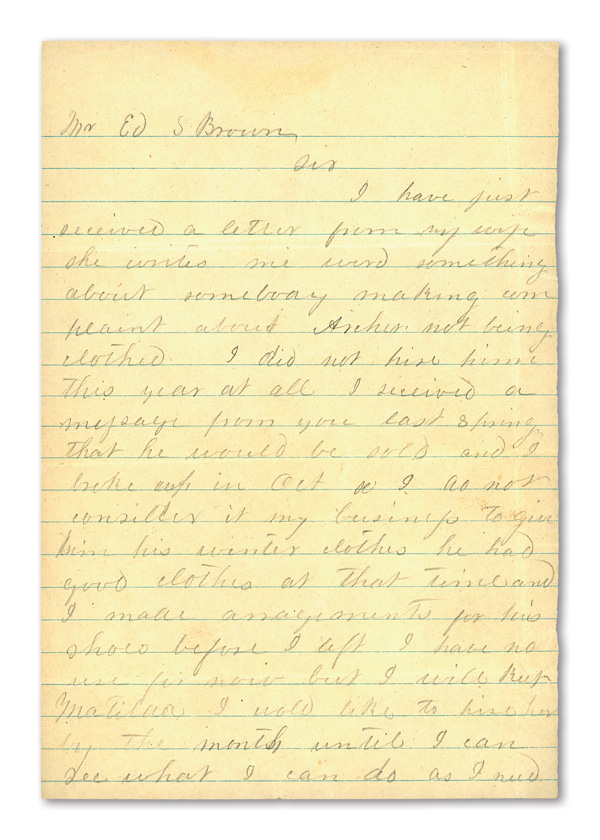 Mr Ed S Brown
Sir
I have just
received a letter from my wife
she writes me word something
about somebody making com
plaint about Archer not being
clothed I did not hire him
this year at all I received a
message from you last Spring
that he would be sold and I
broke up in Oct & I do not
consider it my business to give
him his winter clothes he had
good clothes at that time and
I made arragements for his
shoes before I left I have no
use for now but I will keep
Matilda I wold like to hire her
by the month until I can
see what I can do as I need